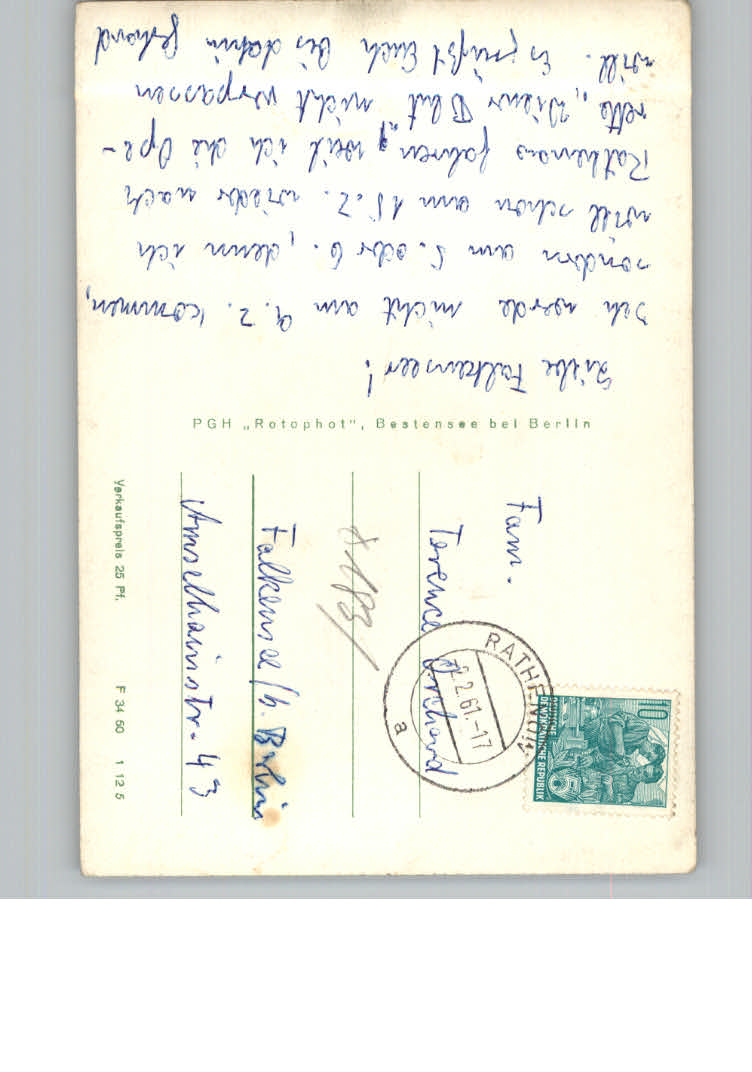 Liebe Falkenseer!
Ich werde nicht am 9. 2. kommen,
sondern am 5. oder 6., denn ich
will schon am 15. 2. wieder nach
Rathenow fahren, weil ich die Ope-
rette „Wiener Blut" nicht verpassen
will. Es grüßt Euch bis dahin Gerhard
PGH „Rotophot", Bestensee bei Berlin
Fam.
Terence
Falkensee/b. Berlin
Amselhainstr. 43
Verkaufspreis 25 Pf.
F 34 60 1 12 5
RATHENOW
2.2.61.-17
a
10
DEUTSCHE
DEMOKRATISCHE REPUBLIK